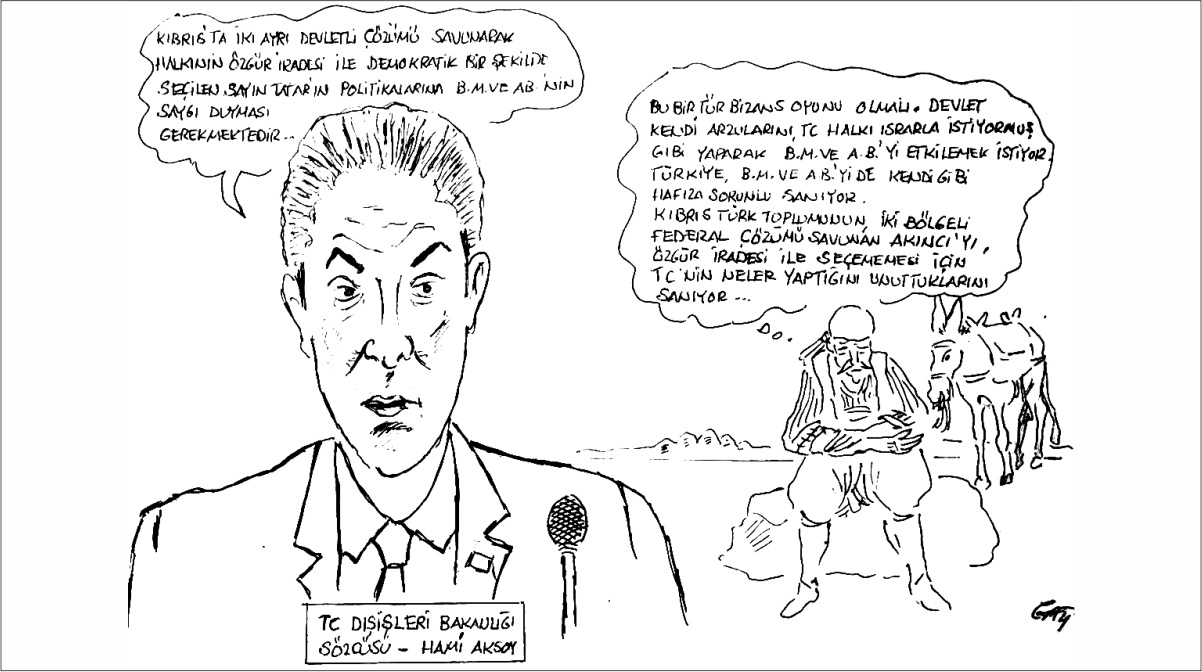 KIBRIS'TA İKİ AYRI DEVLETLİ ÇÖZÜMÜ SAVUNARAK
HALKININ ÖZGÜR İRADESİ İLE DEMOKRATİK BİR ŞEKİLDE
SEÇİLEN SAYIN TATAR'IN POLİTİKALARINA B.M. VE AB.'NİN
SAYGI DUYMASI
GEREKMEKTEDİR...
BU BİR TÜR BİZANS OYUNU OLMALI. DEVLET
KENDİ ARZULARINI, TC HALKI ISRARLA İSTİYORMUŞ
GİBİ YAPARAK B.M. VE A.B.'Yİ ETKİLEMEK İSTİYOR.
TÜRKİYE, B.M. VE AB.'Yİ DE KENDİ GİBİ
HAFIZA SORUNLU SANIYOR.
KIBRIS TÜRK TOPLUMUNUN, İKİ BÖLGELİ
FEDERAL ÇÖZÜMÜ SAVUNAN AKINCI'YI,
ÖZGÜR İRADESİ İLE SEÇEMEMESİ İÇİN
TC'NİN NELER YAPTIĞINI UNUTTUKLARINI
SANIYOR...
TC DIŞİŞLERİ BAKANLIĞI
SÖZCÜSÜ - HAMİ AKSOY